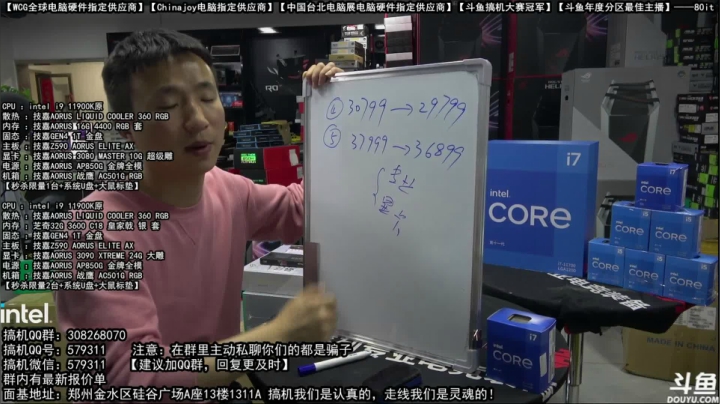 【WCG全球电脑硬件指定供应商】【Chinajoy电脑指定供应商】【中国台北电脑展电脑硬件指定供应商】【斗鱼搞机大赛冠军】【斗鱼年度分区最佳主播】——80it
④ 30799→29799
⑤ 37999→36899
CPU : intel i9 11900K原
散热 : 技嘉AORUS LIQUID COOLER 360 RGB
内存 : 技嘉AORUS 16G 4400 RGB 套
固态 : 技嘉GEN4 1T 金盘
主板 : 技嘉Z590 AORUS ELITE AX
显卡 : 技嘉AORUS 3080 MASTER 10G 超级雕
电源 : 技嘉AORUS AP850G 金牌全模
机箱 : 技嘉AORUS 战鹰 AC501G RGB
【秒杀限量1台+系统U盘+大鼠标垫】
CPU : intel i9 11900K原
散热 : 技嘉AORUS LIQUID COOLER 360 RGB
内存 : 芝奇32G 3600 C18 皇家戟 银 套
固态 : 技嘉GEN4 1T 金盘
主板 : 技嘉Z590 AORUS ELITE AX
显卡 : 技嘉AORUS 3090 XTREME 24G 大雕
电源 : 技嘉AORUS AP850G 金牌全模
机箱 : 技嘉AORUS 战鹰 AC501G RGB
【秒杀限量2台+系统U盘+大鼠标垫】
intel
CORE
i7
i7
i7
intel
CORE
i7
intel
搞机QQ群: 308268070
搞机QQ号: 579311 注意: 在群里主动私聊你们的都是骗子
搞机微信: 579311 【建议加QQ群，回复更及时】
群内有最新报价单
面基地址: 郑州金水区硅谷广场A座13楼1311A 搞机我们是认真的，走线我们是灵魂的！
斗鱼
DOUYU.COM